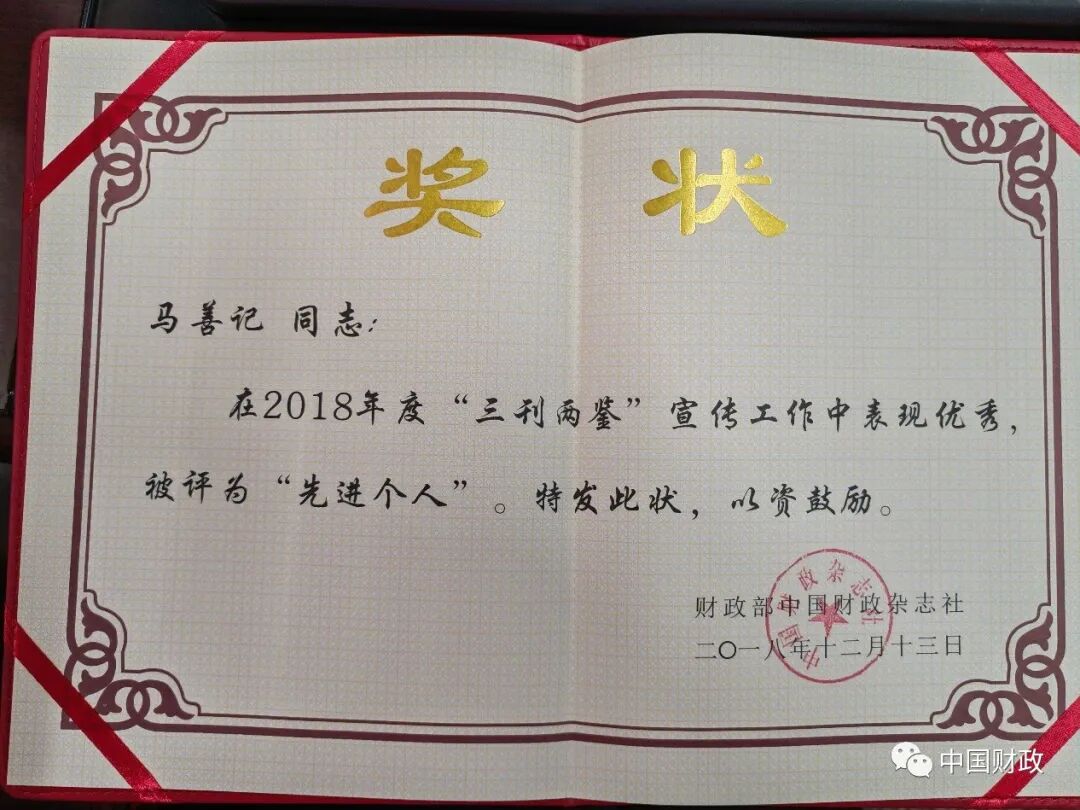 奖 状
马善记 同志：
在2018年度“三刊两鉴”宣传工作中表现优秀，
被评为“先进个人”。特发此状，以资鼓励。
财政部中国财政杂志社
二〇一八年十二月十三日
中国财政杂志社
中国财政